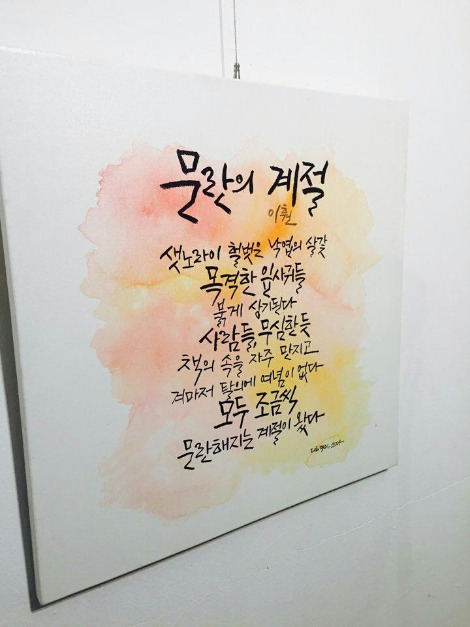 문란의 계절
이훤
샛노라이 헐벗은 낙엽의 살갗
목격한 잎사귀들
붉게 상기된다
사람들, 무심한 듯
책의 속을 자주 만지고
겨마저 탈의에 여념이 없다
모두 조금씩
문란해지는 계절이 왔다